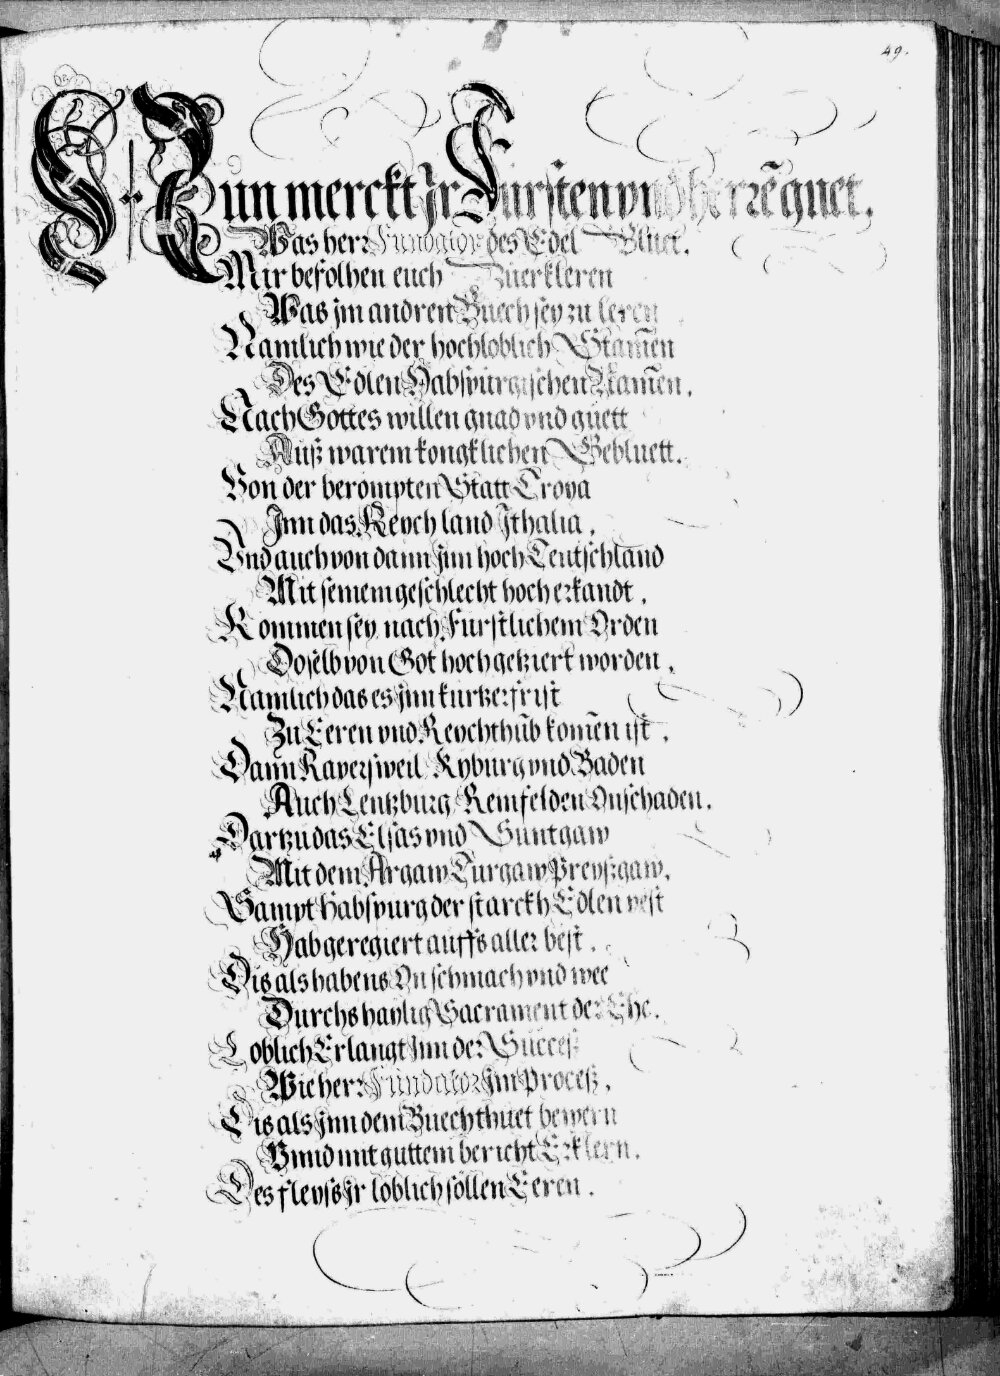 49.
Nun merckt Jr Fursten vnd herrẽ guet,
Was herr Fundator des Edel Bluet.
Mir befolhen euch Zuerkleren
Was jm andren Buech sey zu leren
Namlich wie der hochloblich Stam̃en
Des Edlen Habspurgischen Nam̃en.
Nach Gottes willen gnad vnd guett
Auß warem kongklichen Gebluett.
Von der berompten Statt Troya
Jnn das Reych land Jthalia,
Vnd auch von dann jnn hoch Teutschland
Mit seinem geschlecht hoch erkandt,
Kommen sey nach Furstlichem Orden
Doselb von Got hoch getziert worden,
Namlich das es jnn kurtzer frist
Zu Eeren vnd Reychthũb kom̃en ist,
Dann Rapersweil Kyburg vnd Baden
Auch Lentzburg Reinfelden Onschaden.
Dartzu das Elsas vnd Suntgaw
Mit dem Argaw Turgaw Preyßgaw,
Sampt Habspurg der starckh Edlen vest
Hab geregiert auffs aller best,
Dis als habens On schmach vnd wee
Durchs haylig Sacrament der Ehe.
Loblich Erlangt jnn der Succeß
Wie herr Fundator jm Proceß,
Dis als jnn dem Buech thuet bewern
Vnnd mit guttem bericht Erklern.
Des fleyss jr loblich sollen Eeren.